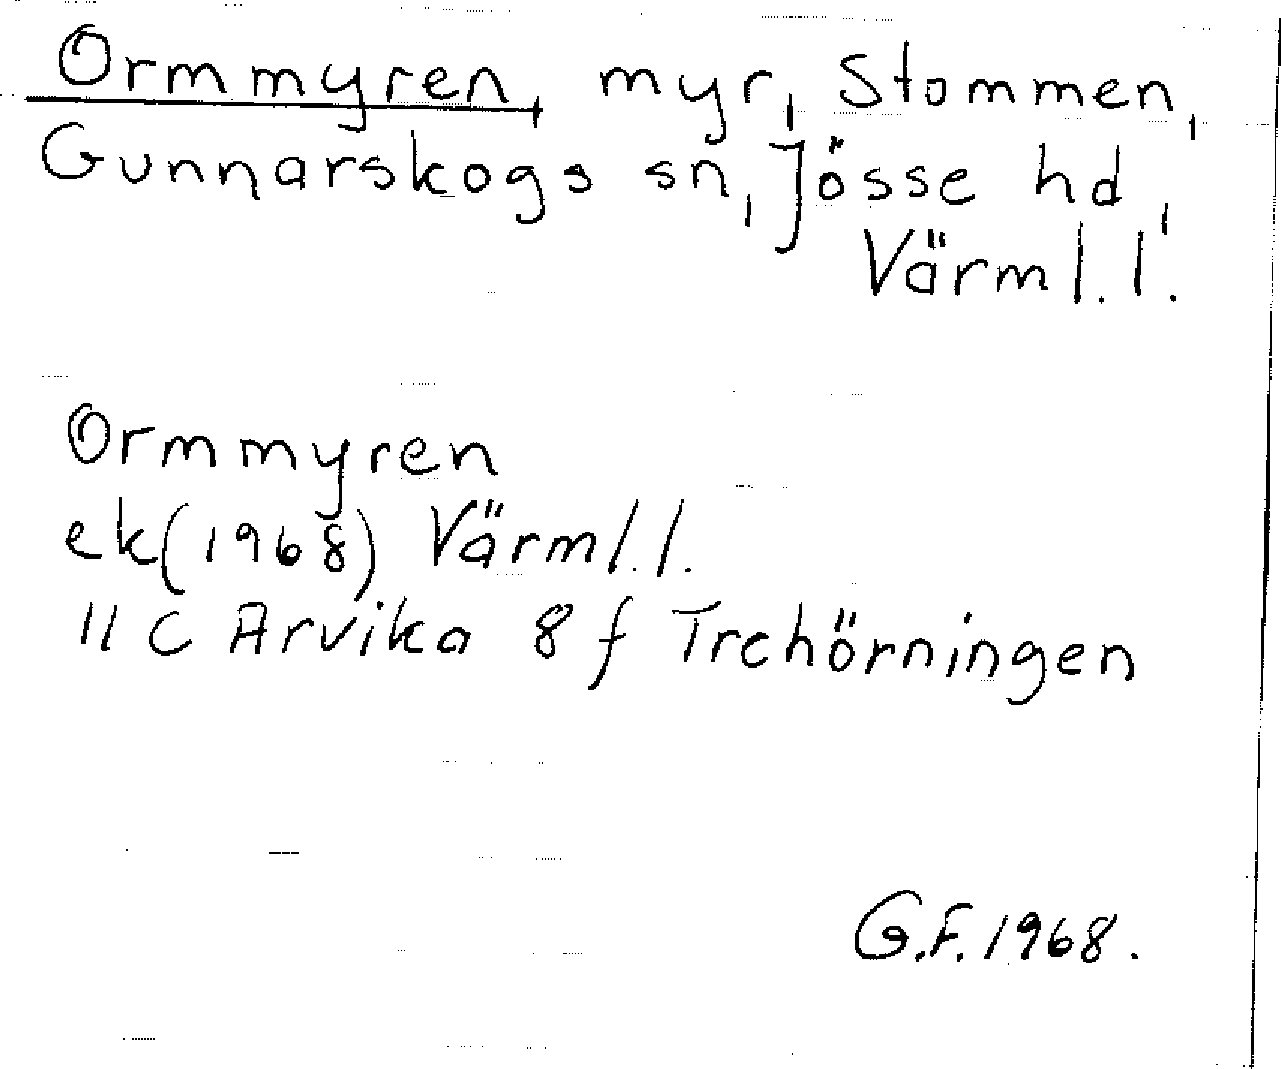 Ormmyren, myr, Stommen,
Gunnarskogs sn, Jösse hd,
Värml. l.
Ormmyren
ek (1968) Värml. l.
11 C Arvika 8 f Trehörningen
G.F. 1968.